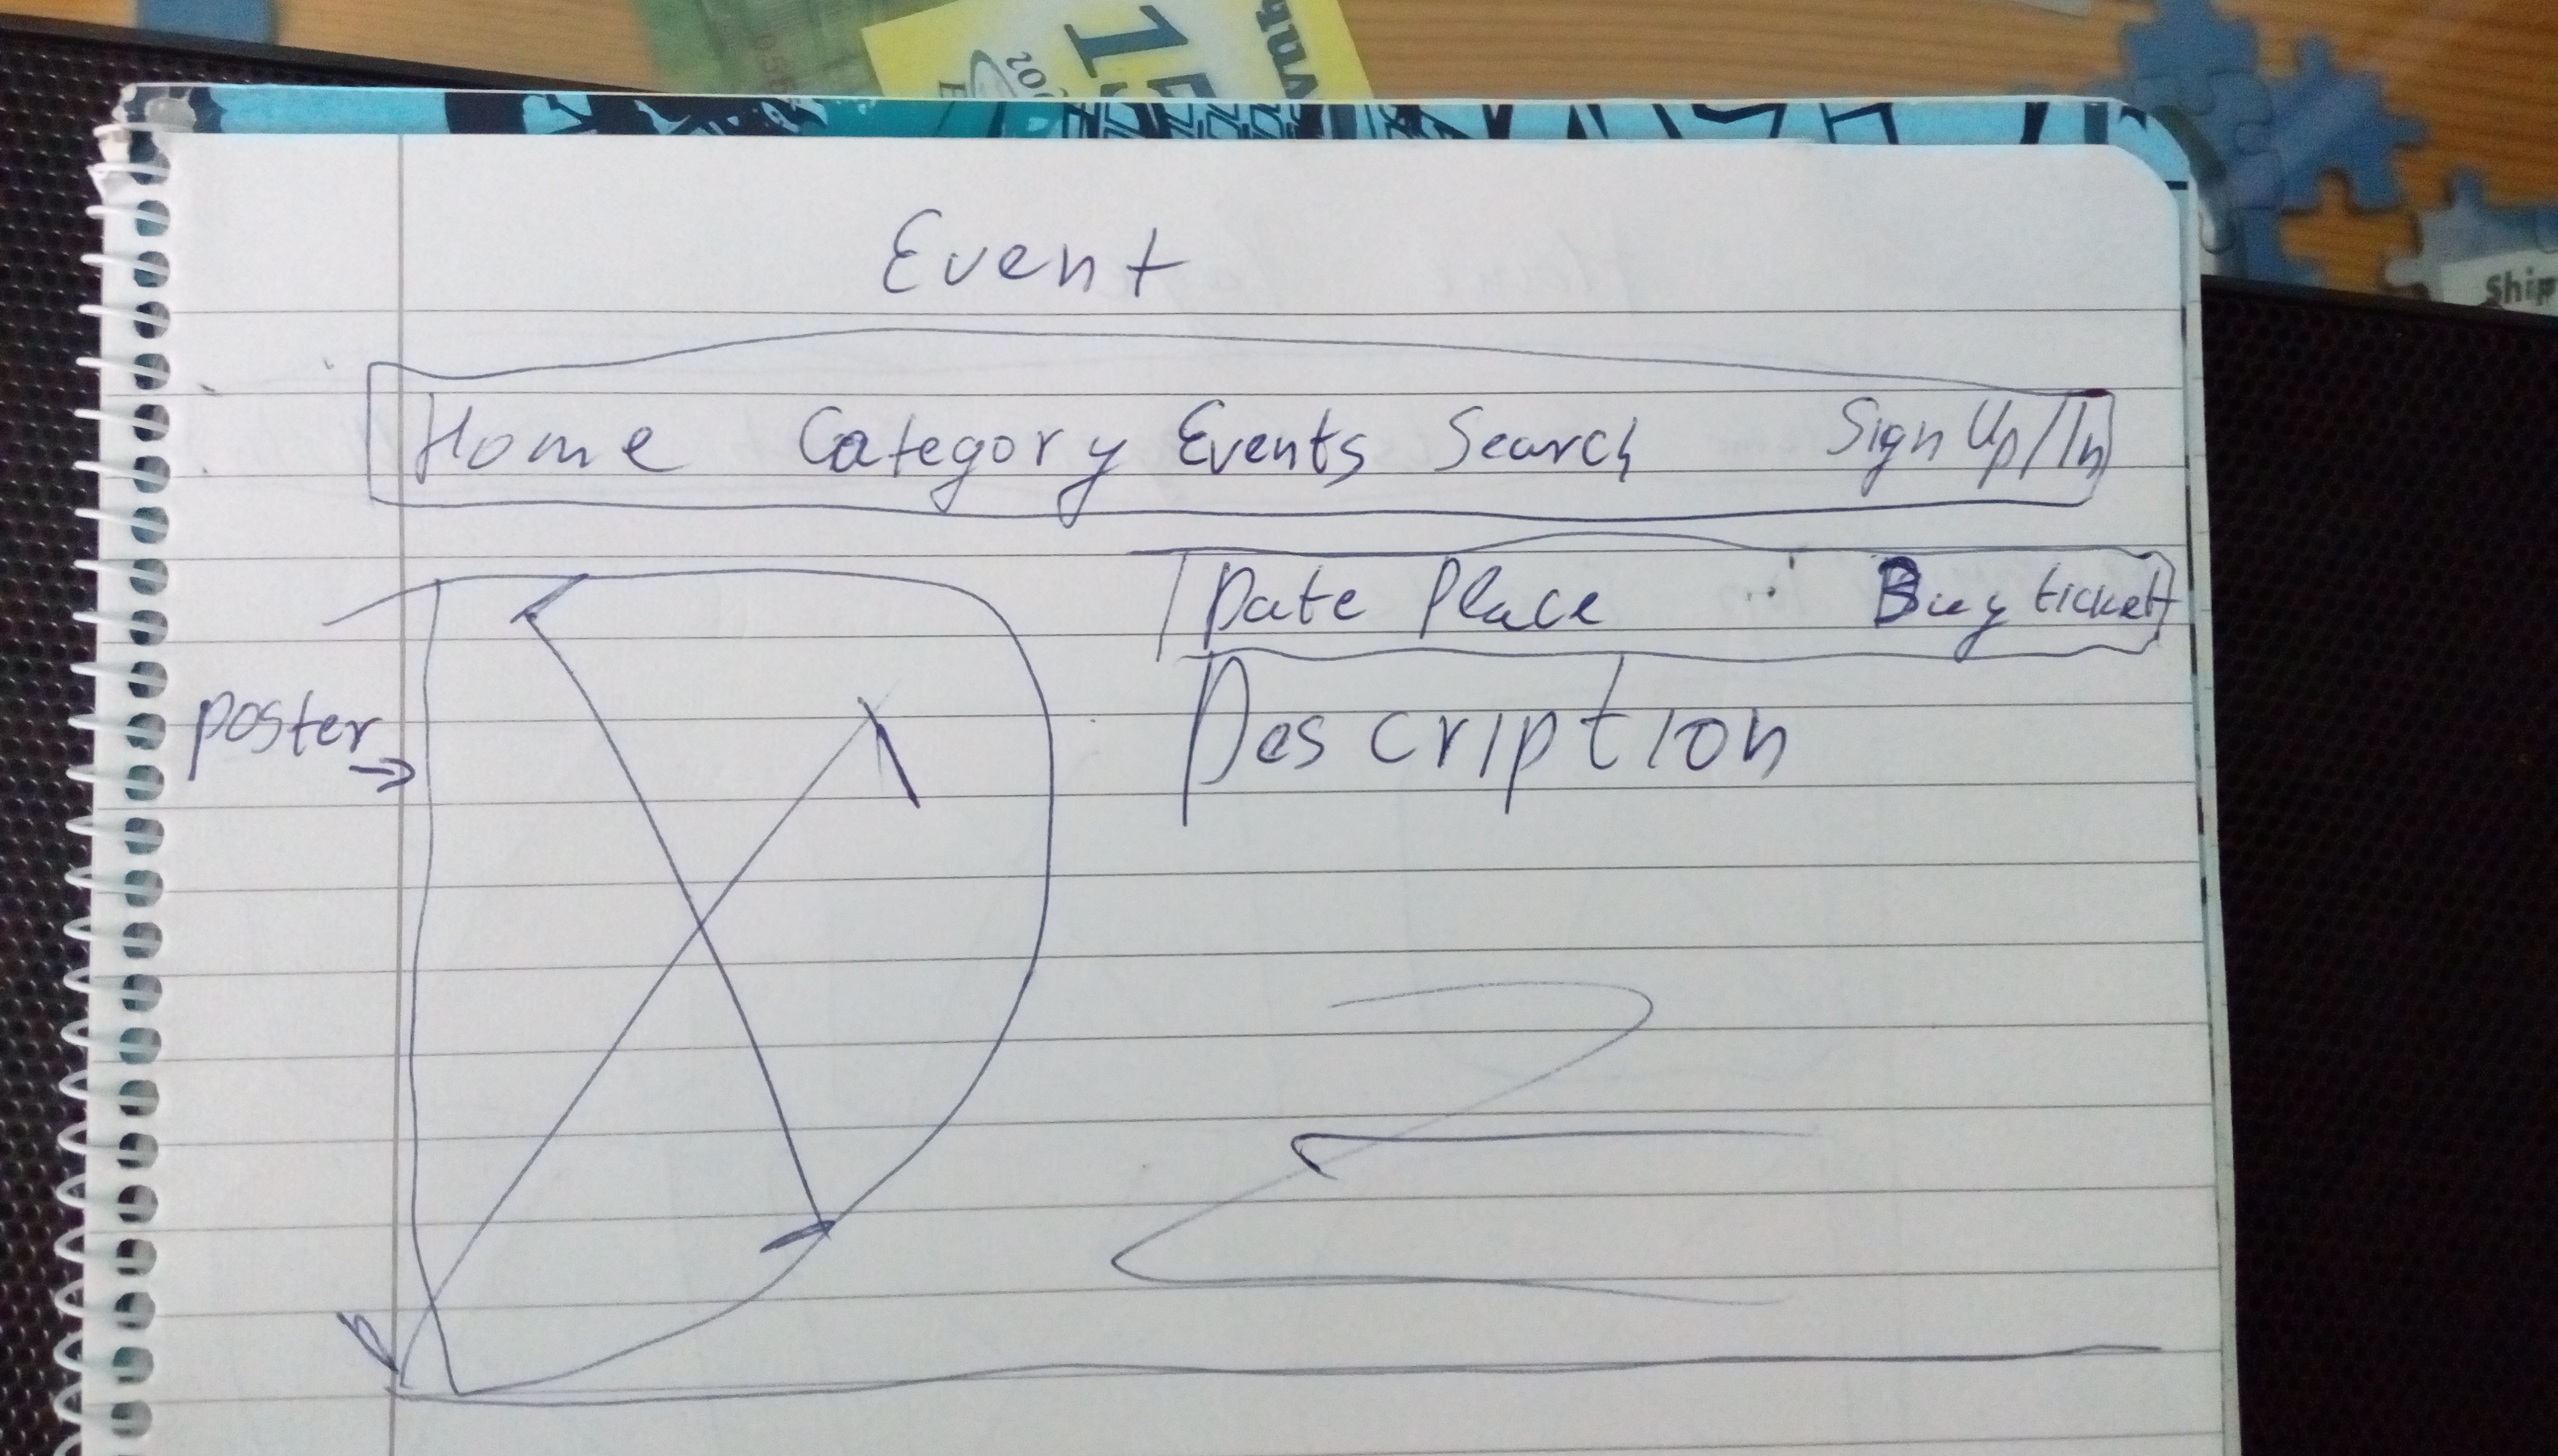 Event
Home Category Events Search Sign Up/In
Date Place Buy ticket
poster
Description
Ship